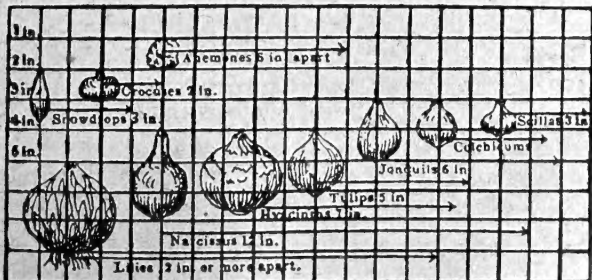 1 in.
2 in.
Anemones 6 in. apart
3 in.
Crocuses 2 in.
4 in.
Snowdrops 3 in.
Scillas 3 in.
Colchicums
5 in.
Jonquils 6 in.
Tulips 5 in
Hyacinths 7 in.
Narcissus 12 in.
Lilies, 12 in. or more apart.